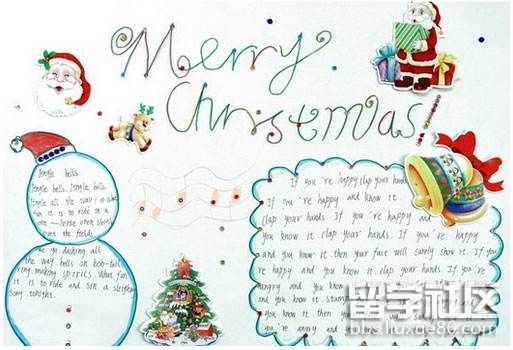 Merry
Christmas!
Jingle bells
Jingle bells, Jingle bells
Jingle all the way! o what
fun it is to ride in a
one-horse open
over the fields
we go, dashing all
the way bells on bob-tail
ring, making spirits. What fun
it is to ride and sin a sleighin
song tonight.
If you 're happy clap your hands.
If you 're happy and know it.
clap your hands. If you 're happy and
you know it clap your hands. If you 're happy
and you know it then your face will surely show it. If you
're happy and you know it. clap your hands. If you 're
angry and you know
you know it stamp
you know it then you
you 're angry and
留学社区
bbs.liuxue86.com